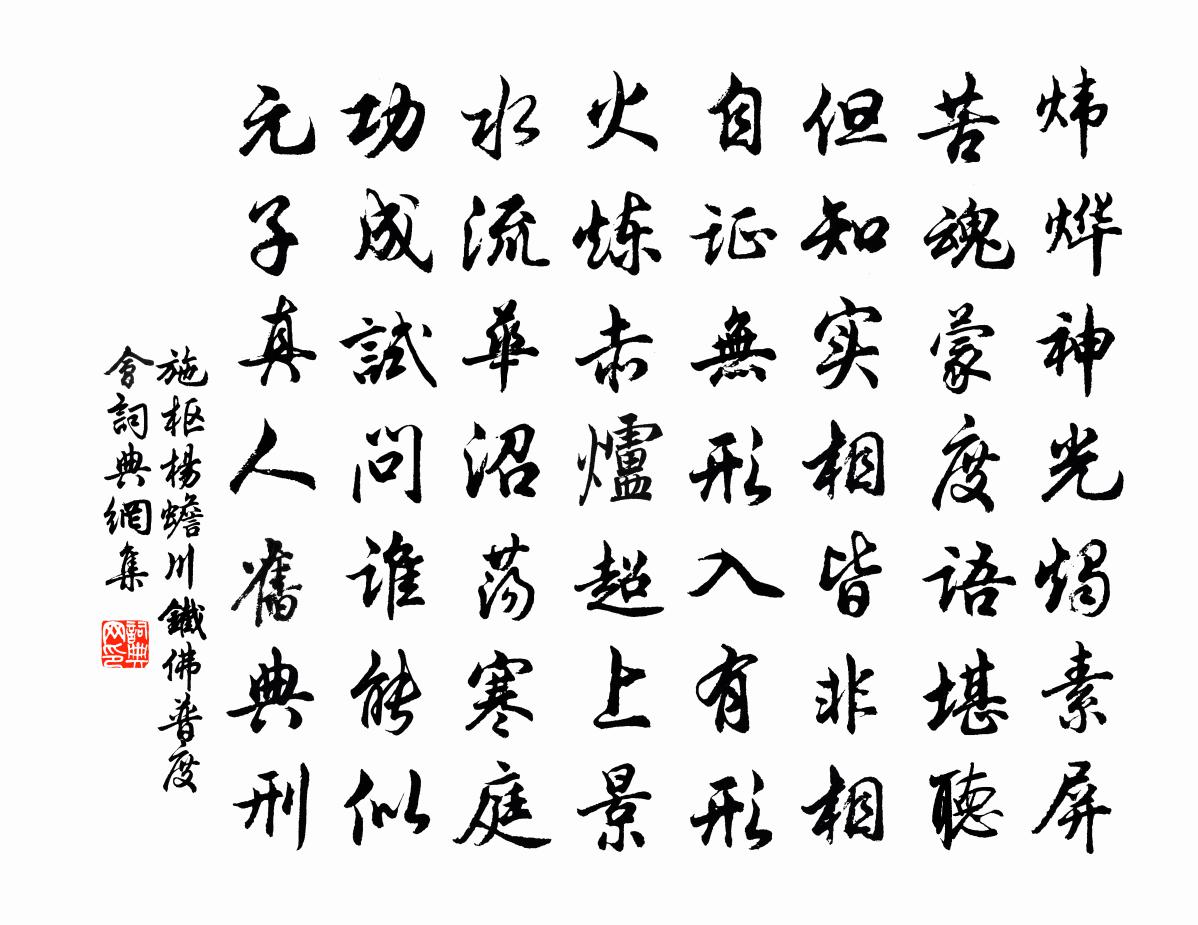 炜烨神光烛素屏
苦魂蒙度语堪聽
但知实相皆非相
自证無形入有形
火炼赤爐超上景
水流華沼荡寒庭
功成試问谁能似
元子真人舊典刑
施枢杨蟾川鐵佛普度
會詞典網集
詞典网印